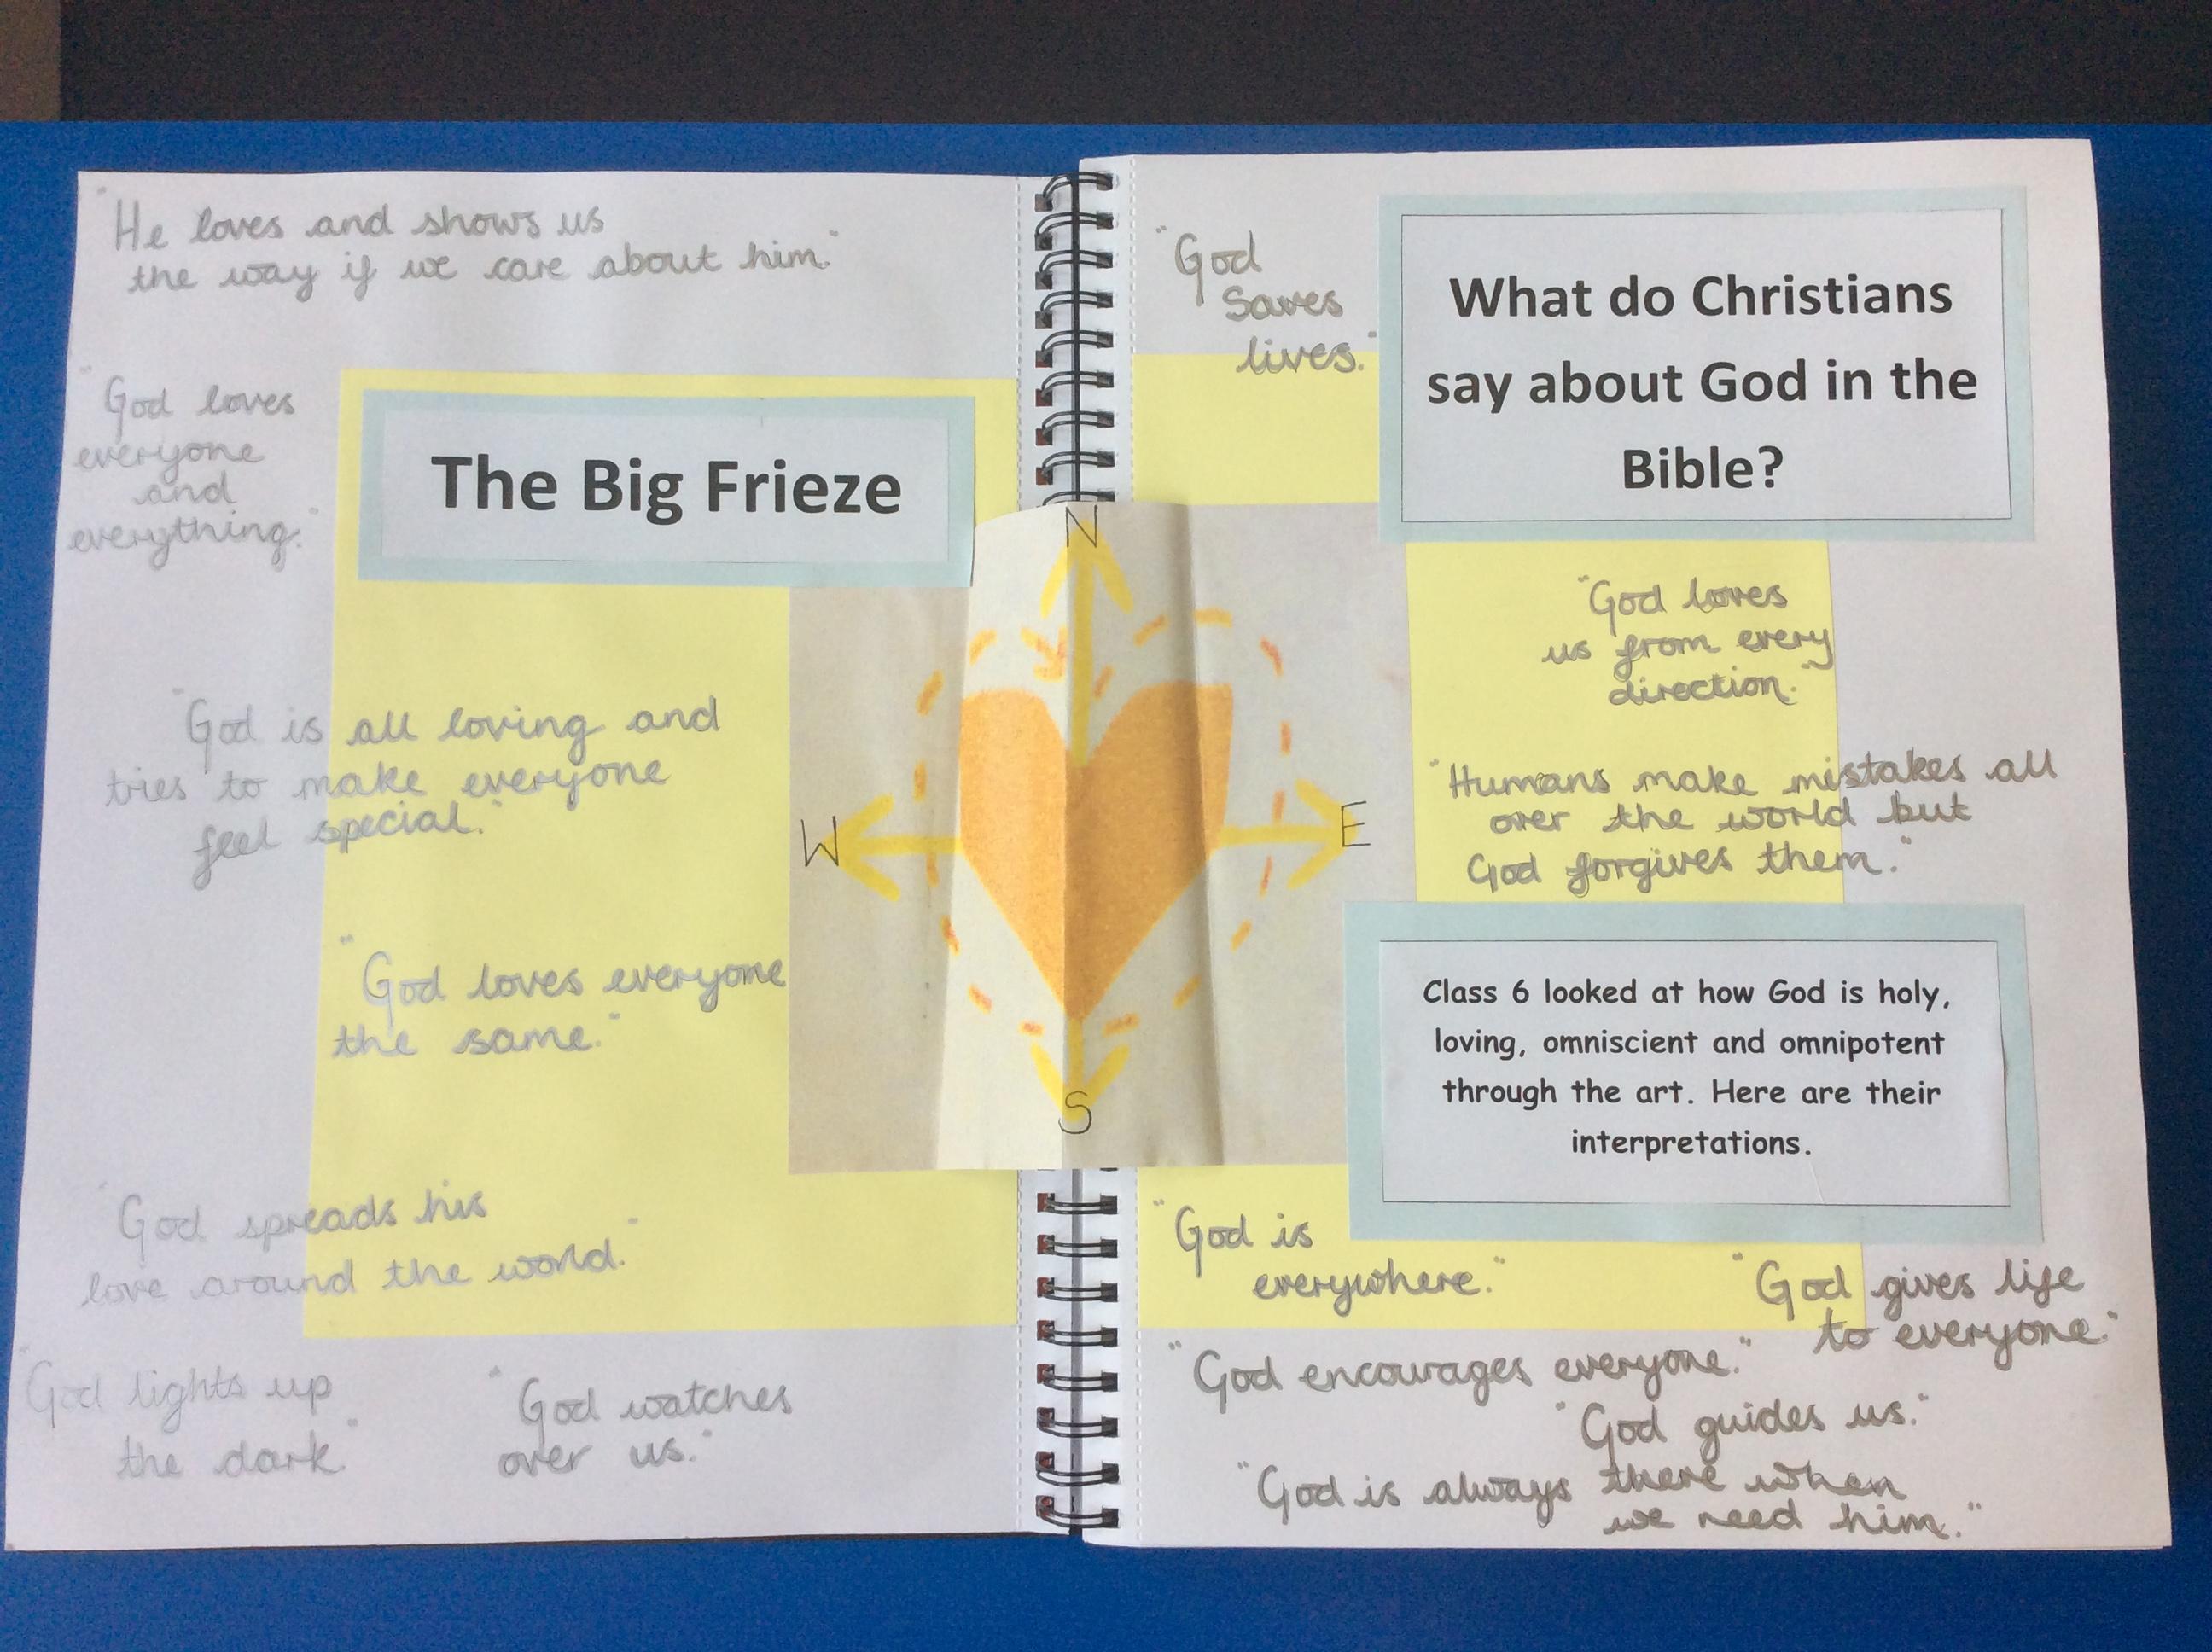 "He loves and shows us
the way if we care about him."
"God loves
everyone
and
everything."
The Big Frieze
"God is all loving and
tries to make everyone
feel special."
"God loves everyone
the same."
"God spreads his
love around the world."
"God lights up
the dark"
"God watches
over us."
N
W
E
S
"God
saves
lives."
What do Christians
say about God in the
Bible?
"God loves
us from every
direction."
"Humans make mistakes all
over the world but
God forgives them."
Class 6 looked at how God is holy,
loving, omniscient and omnipotent
through the art. Here are their
interpretations.
"God is
everywhere."
"God gives life
to everyone."
"God encourages everyone."
"God guides us."
"God is always there when
we need him."